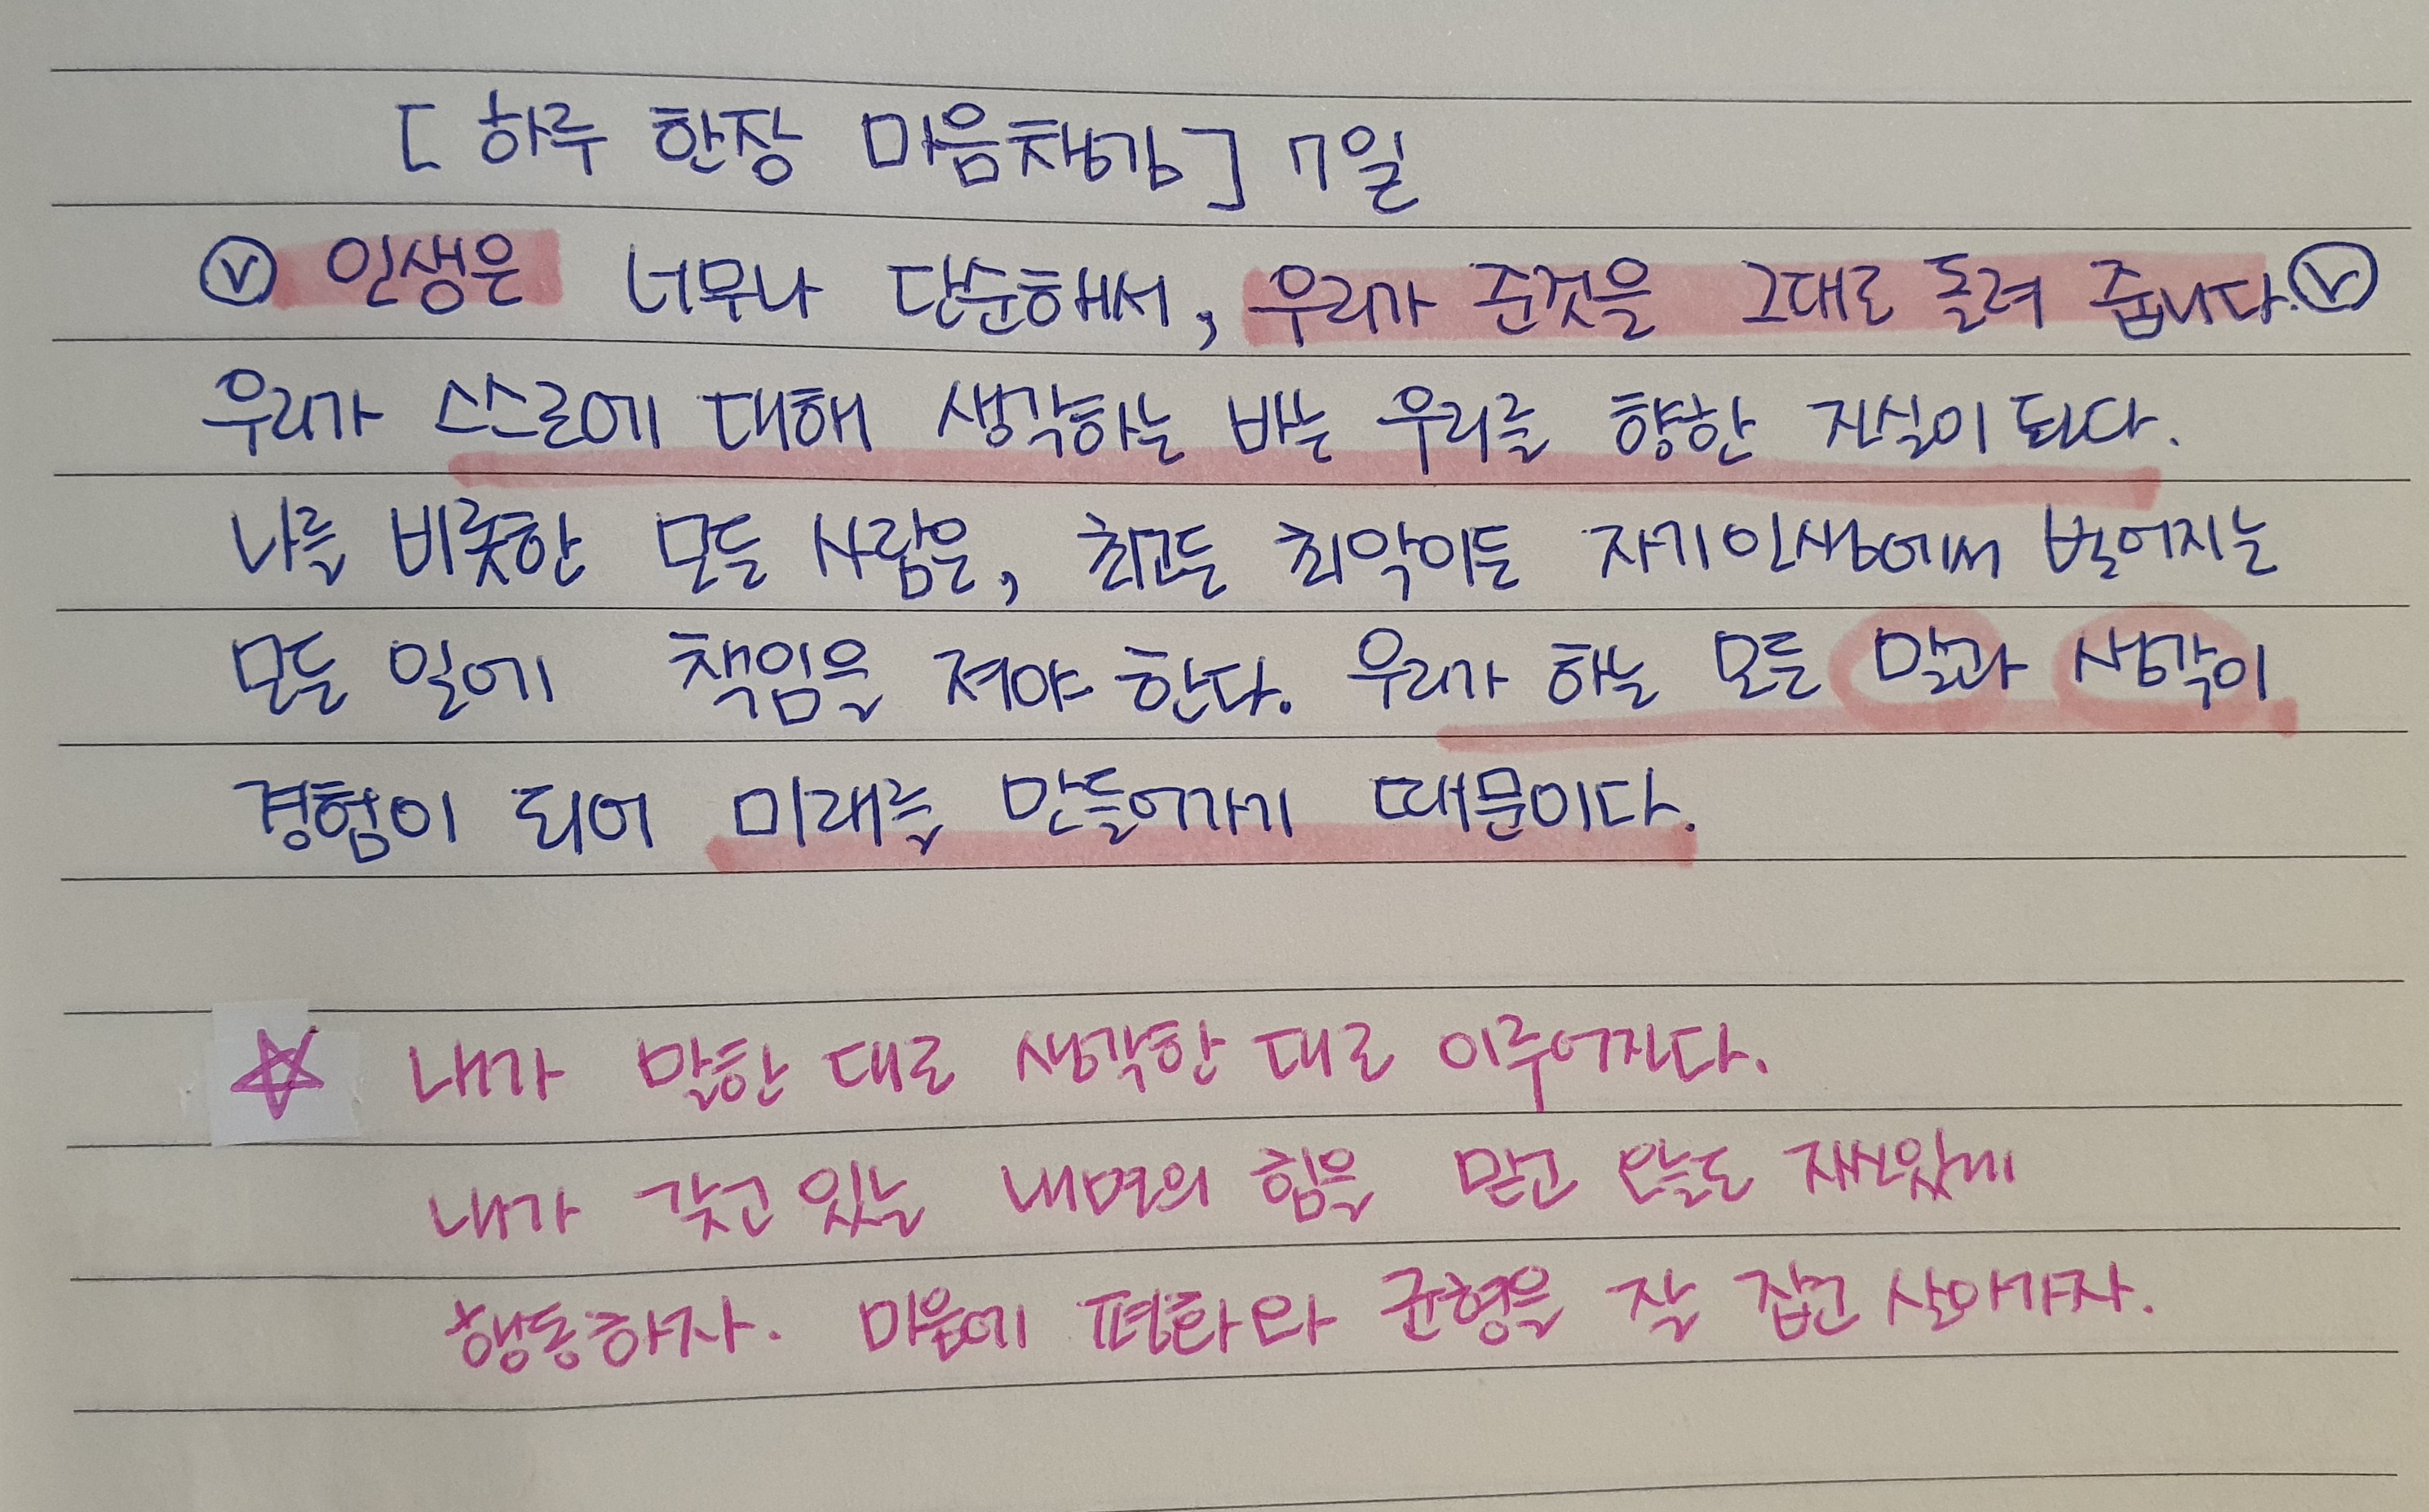 [하루 한장 마음챙김] 7일
ⓥ 인생은 너무나 단순해서, 우리가 준것을 그대로 돌려 줍니다. ⓥ
우리가 스스로에 대해 생각하는 바는 우리를 향한 진실이 된다.
나를 비롯한 모든 사람은, 최고든 최악이든 자기인생에서 벌어지는
모든 일에 책임을 져야 한다. 우리가 하는 모든 말과 생각이
경험이 되어 미래를 만들어가기 때문이다.
☆ 내가 말한 대로 생각한 대로 이루어진다.
내가 갖고 있는 내면의 힘을 믿고 오늘도 재밌있게
행동하자. 마음에 평화와 균형을 잘 잡고 살아가자.